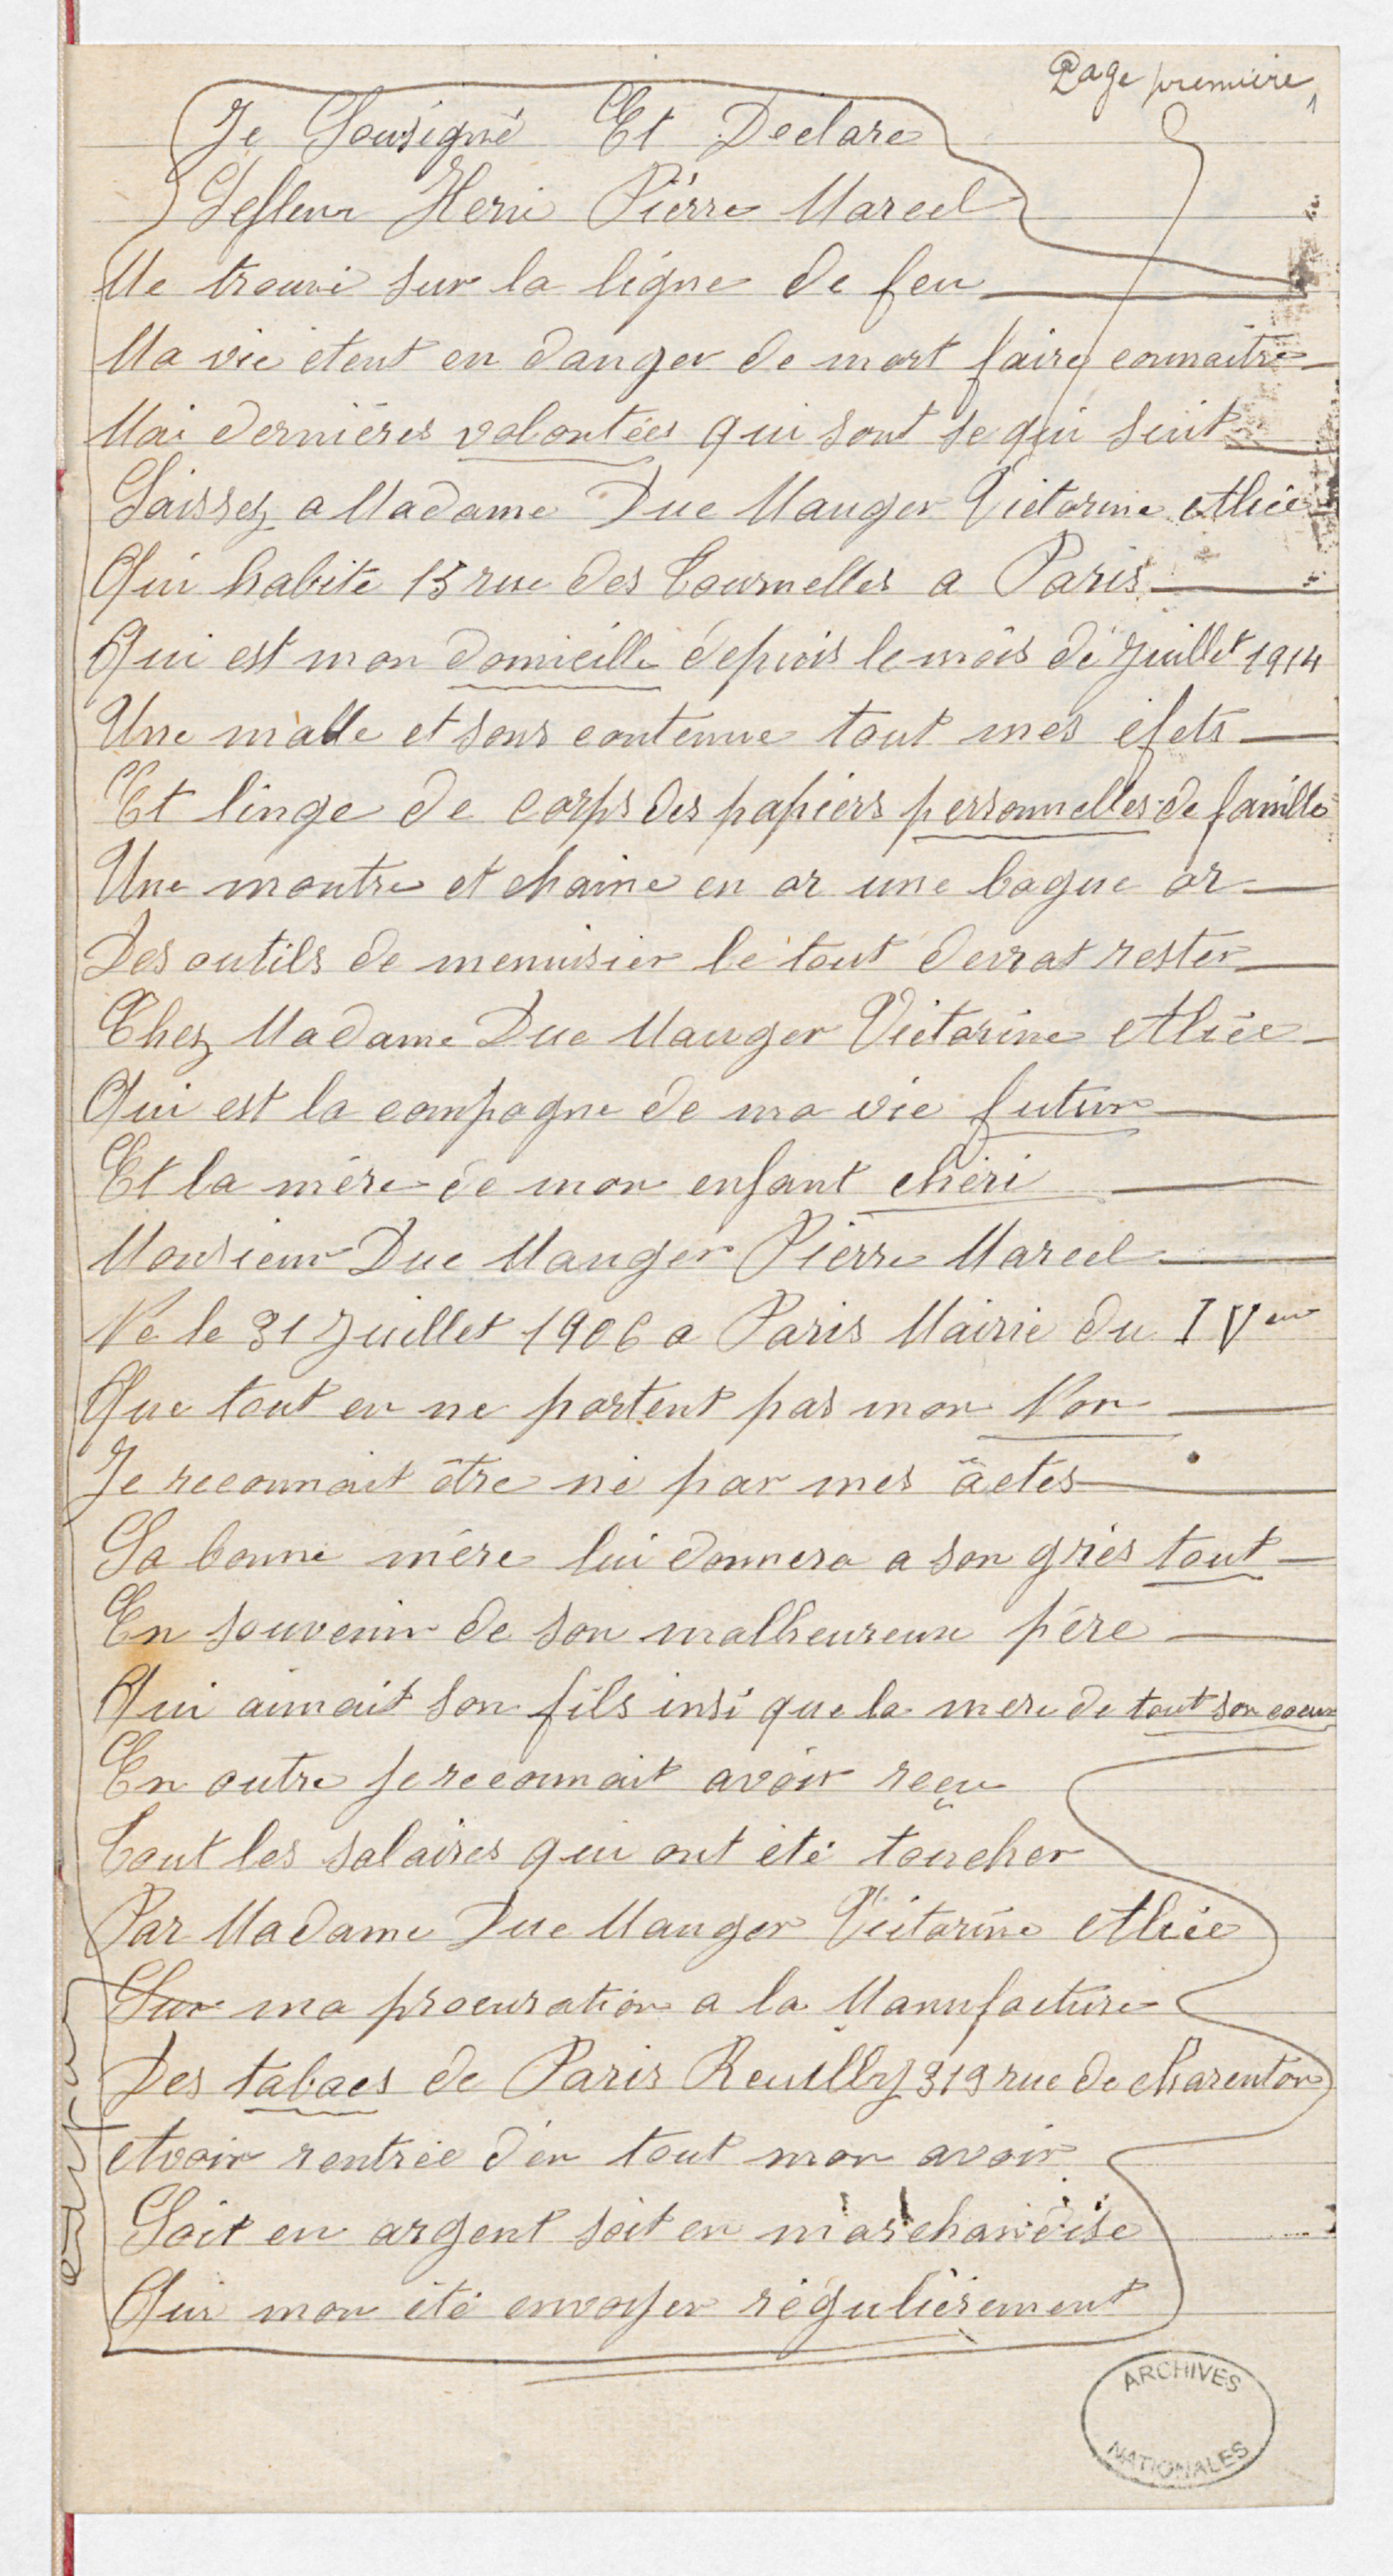 Page première
Je Sousigné Et Déclare
Lefleur Henri Pierre Marcel
Me trouvé sur la ligne de feu
Ma vie étent en danger de mort faire connaitre
Mai dernières volontées qui sont se qui suit
Laissez a Madame Duc Mauger Victorine Alice
Qui habite 15 rue des Tournelles a Paris
Qui est mon domicille depuis le mois de Juillet 1914
Une malle et sons contenue tout mes éfets
Et linge de corps des papiers personnelles de famille
Une montre et chaine en or une bague or
Des outils de menuisier le tout devrat rester
Chez Madame Duc Mauger Victorine Alice
Qui est la compagne de ma vie futur
Et la mère de mon enfant chéri
Monsieur Duc Mauger Pierre Marcel
Né le 31 Juillet 1906 a Paris Mairie du IVem
Que tout en ne portent pas mon Non
Je reconnait être né par mes actes
Sa bonne mère lui donnera a son grès tout
En souvenir de son malheureux père
Qui aimait son fils insi que la mere de tout son coeur
En outre je reconnait avoir reçu
Tout les salaires qui ont été toucher
Par Madame Duc Mauger Victorine Alice
Sur ma procuration a la Manufacture
Des tabacs de Paris Reuilly 319 rue de charenton
Avoir rentrée d'en tout mon avoir
Soit en argent soit en marchandise
Qui mon été envoyer régulièrement
ARCHIVES
NATIONALES